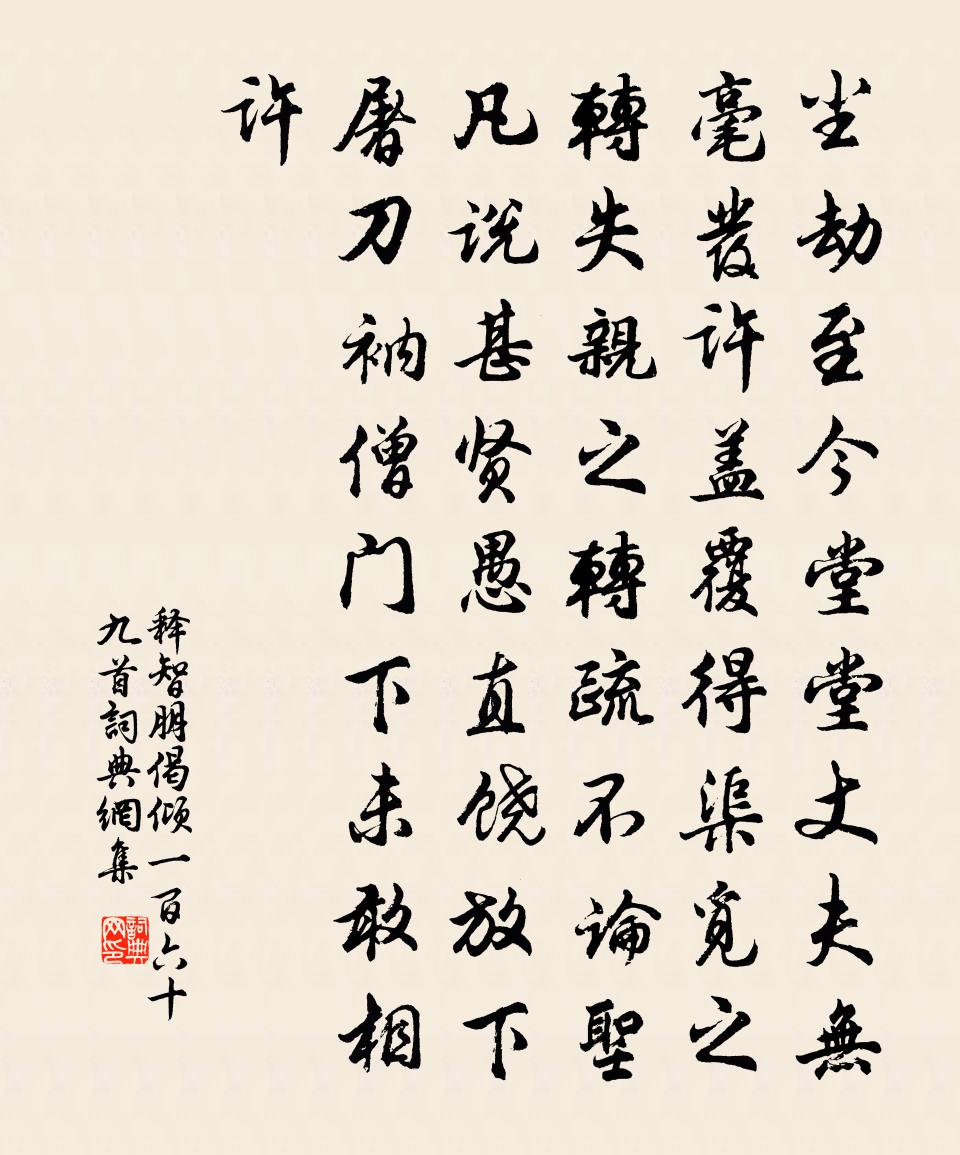 尘劫至今堂堂丈夫無
毫發许盖覆得渠觅之
轉失親之轉疏不論聖
凡说甚贤愚直饶放下
屠刀衲僧门下未敢相
许
释智朋偈倾一百六十
九首詞典網集
詞典
网印